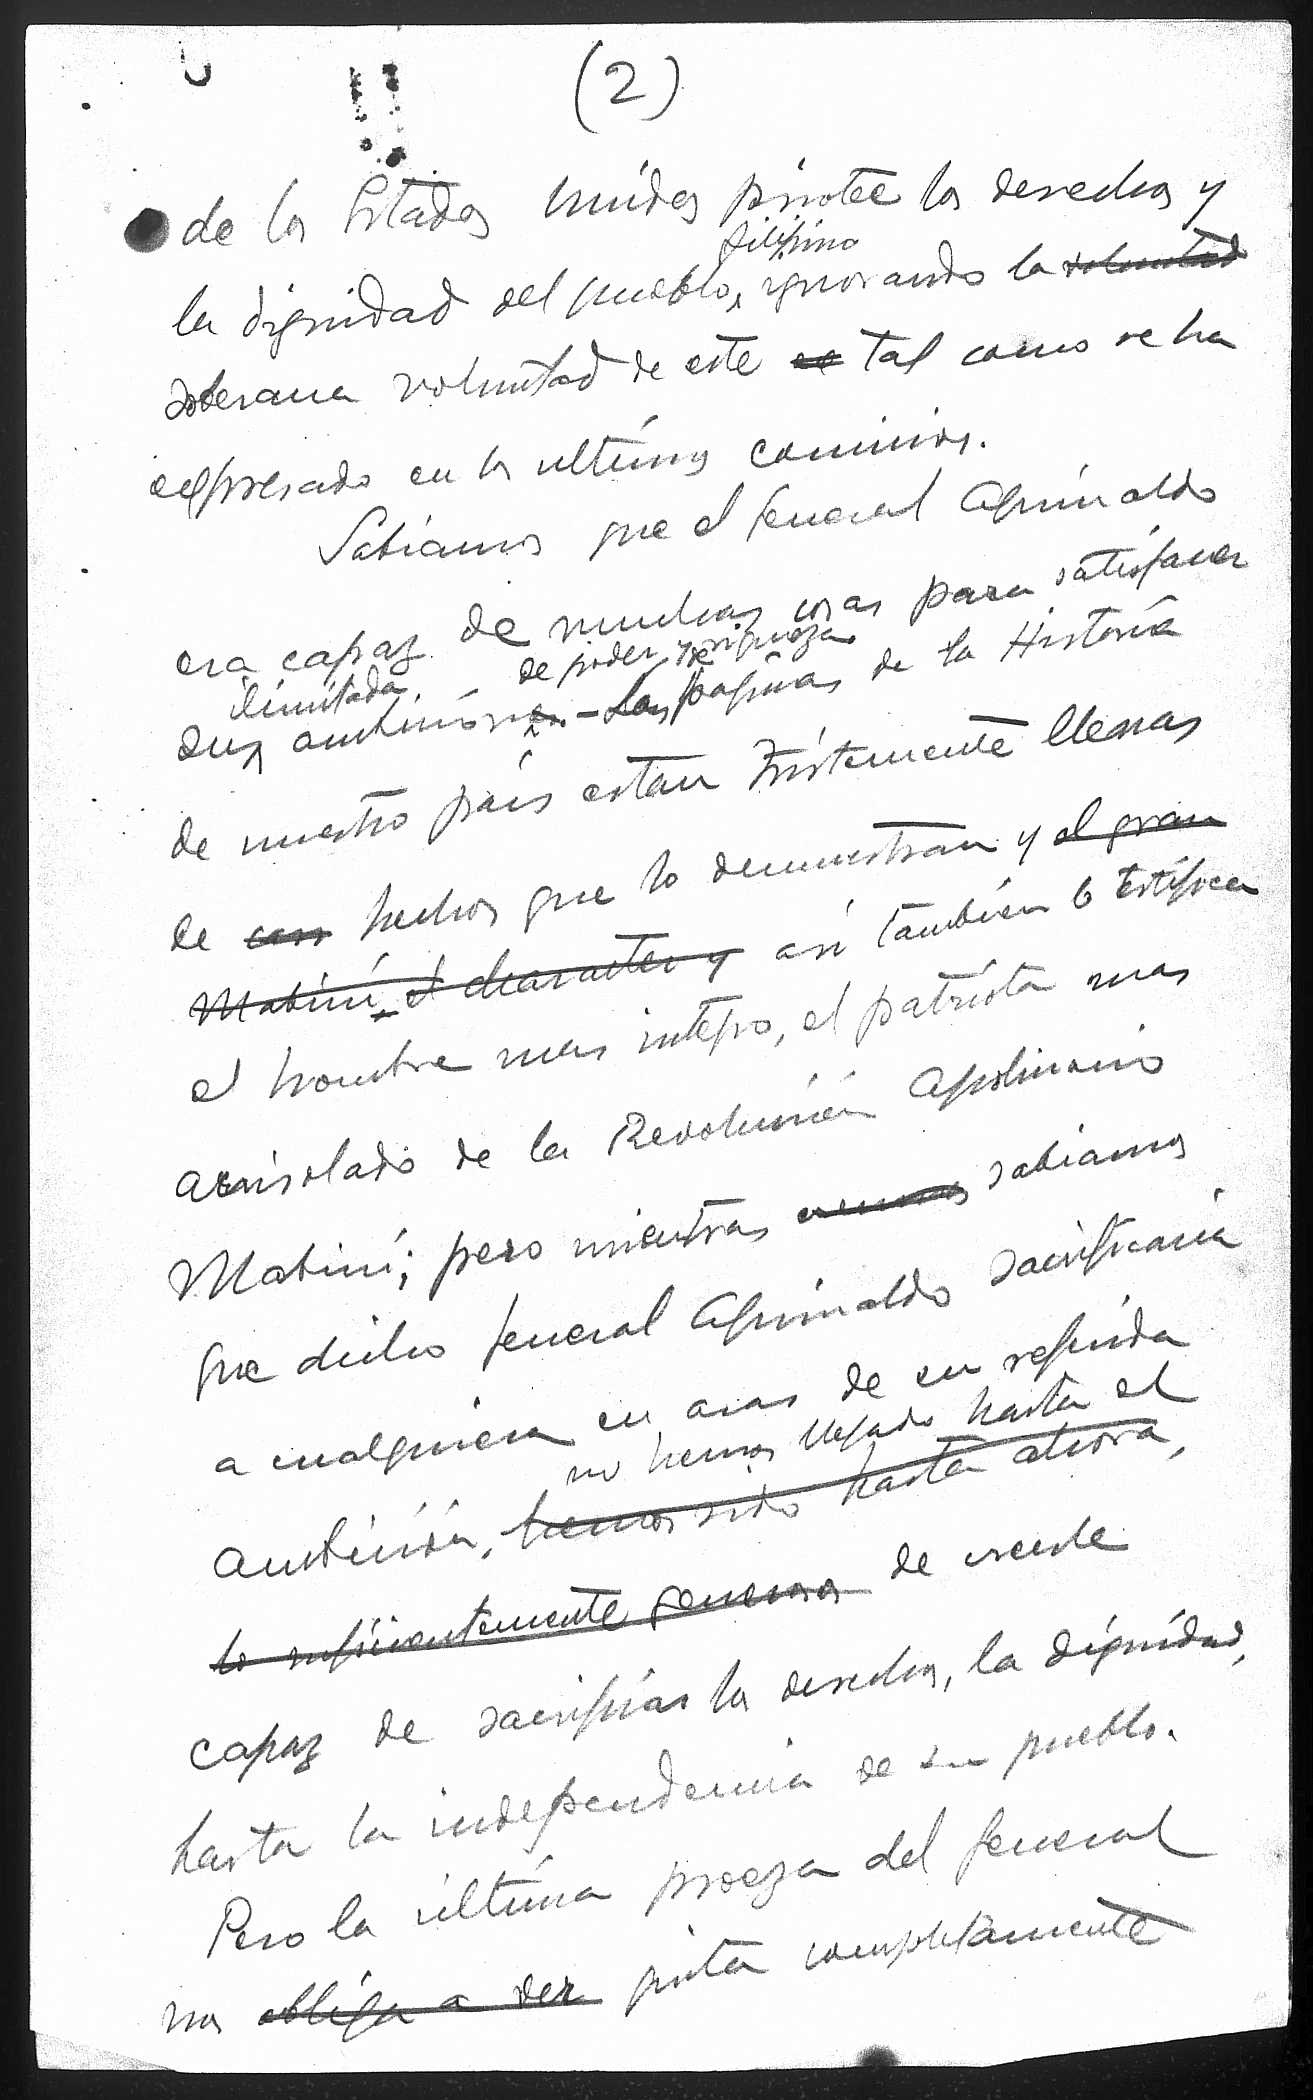 (2)
de los Estados Unidos pisotee los derechos y
filipino
la dignidad del pueblo, ignorando la voluntad
soberana voluntad de este se tal como se ha
expresado en los ultimos comicios.
Sabiamos que el General Aguinaldo
era capaz de muchas cosas para satisfacer
ilimitadas de poder y de riqueza
sus ambiciones - Las paginas de la Historia
de nuestro país estan tristemente llenas
de hechos que lo demuestran y el gran
Mabini, el character y asi también lo testifica
el hombre mas integro, el patriota mas
acrisolado de la Revolución Apolinario
Mabini; pero mientras creemos sabiamos
que dicho General Aguinaldo sacrificaria
a cualquiera en aras de su
no hemos llegado hasta el
ambición, hemos sido hasta ahora,
lo suficientemente generosos de creerle
capaz de sacrificar los derechos, la dignidad,
hasta la independencia de su pueblo.
Pero la ultima proeza del General
nos obliga a ver pinta completamente